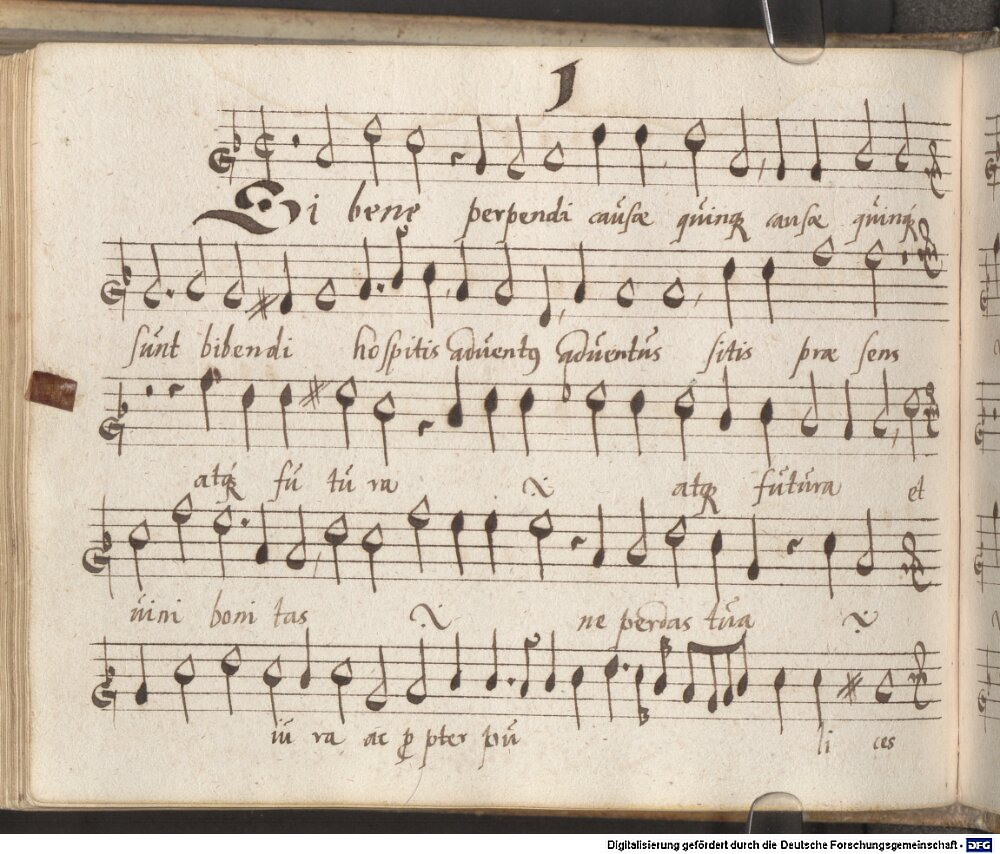 1
Si bene perpendi causæ quinqꝫ causæ quinqꝫ
sunt bibendi hospitis adventꝰ adventus sitis præ sens
atqꝫ fu tu ra atqꝫ futura et
vini boni tas ne perdas tua
iu ra ac ꝓ pter pu li ces
Digitalisierung gefördert durch die Deutsche Forschungsgemeinschaft - DFG